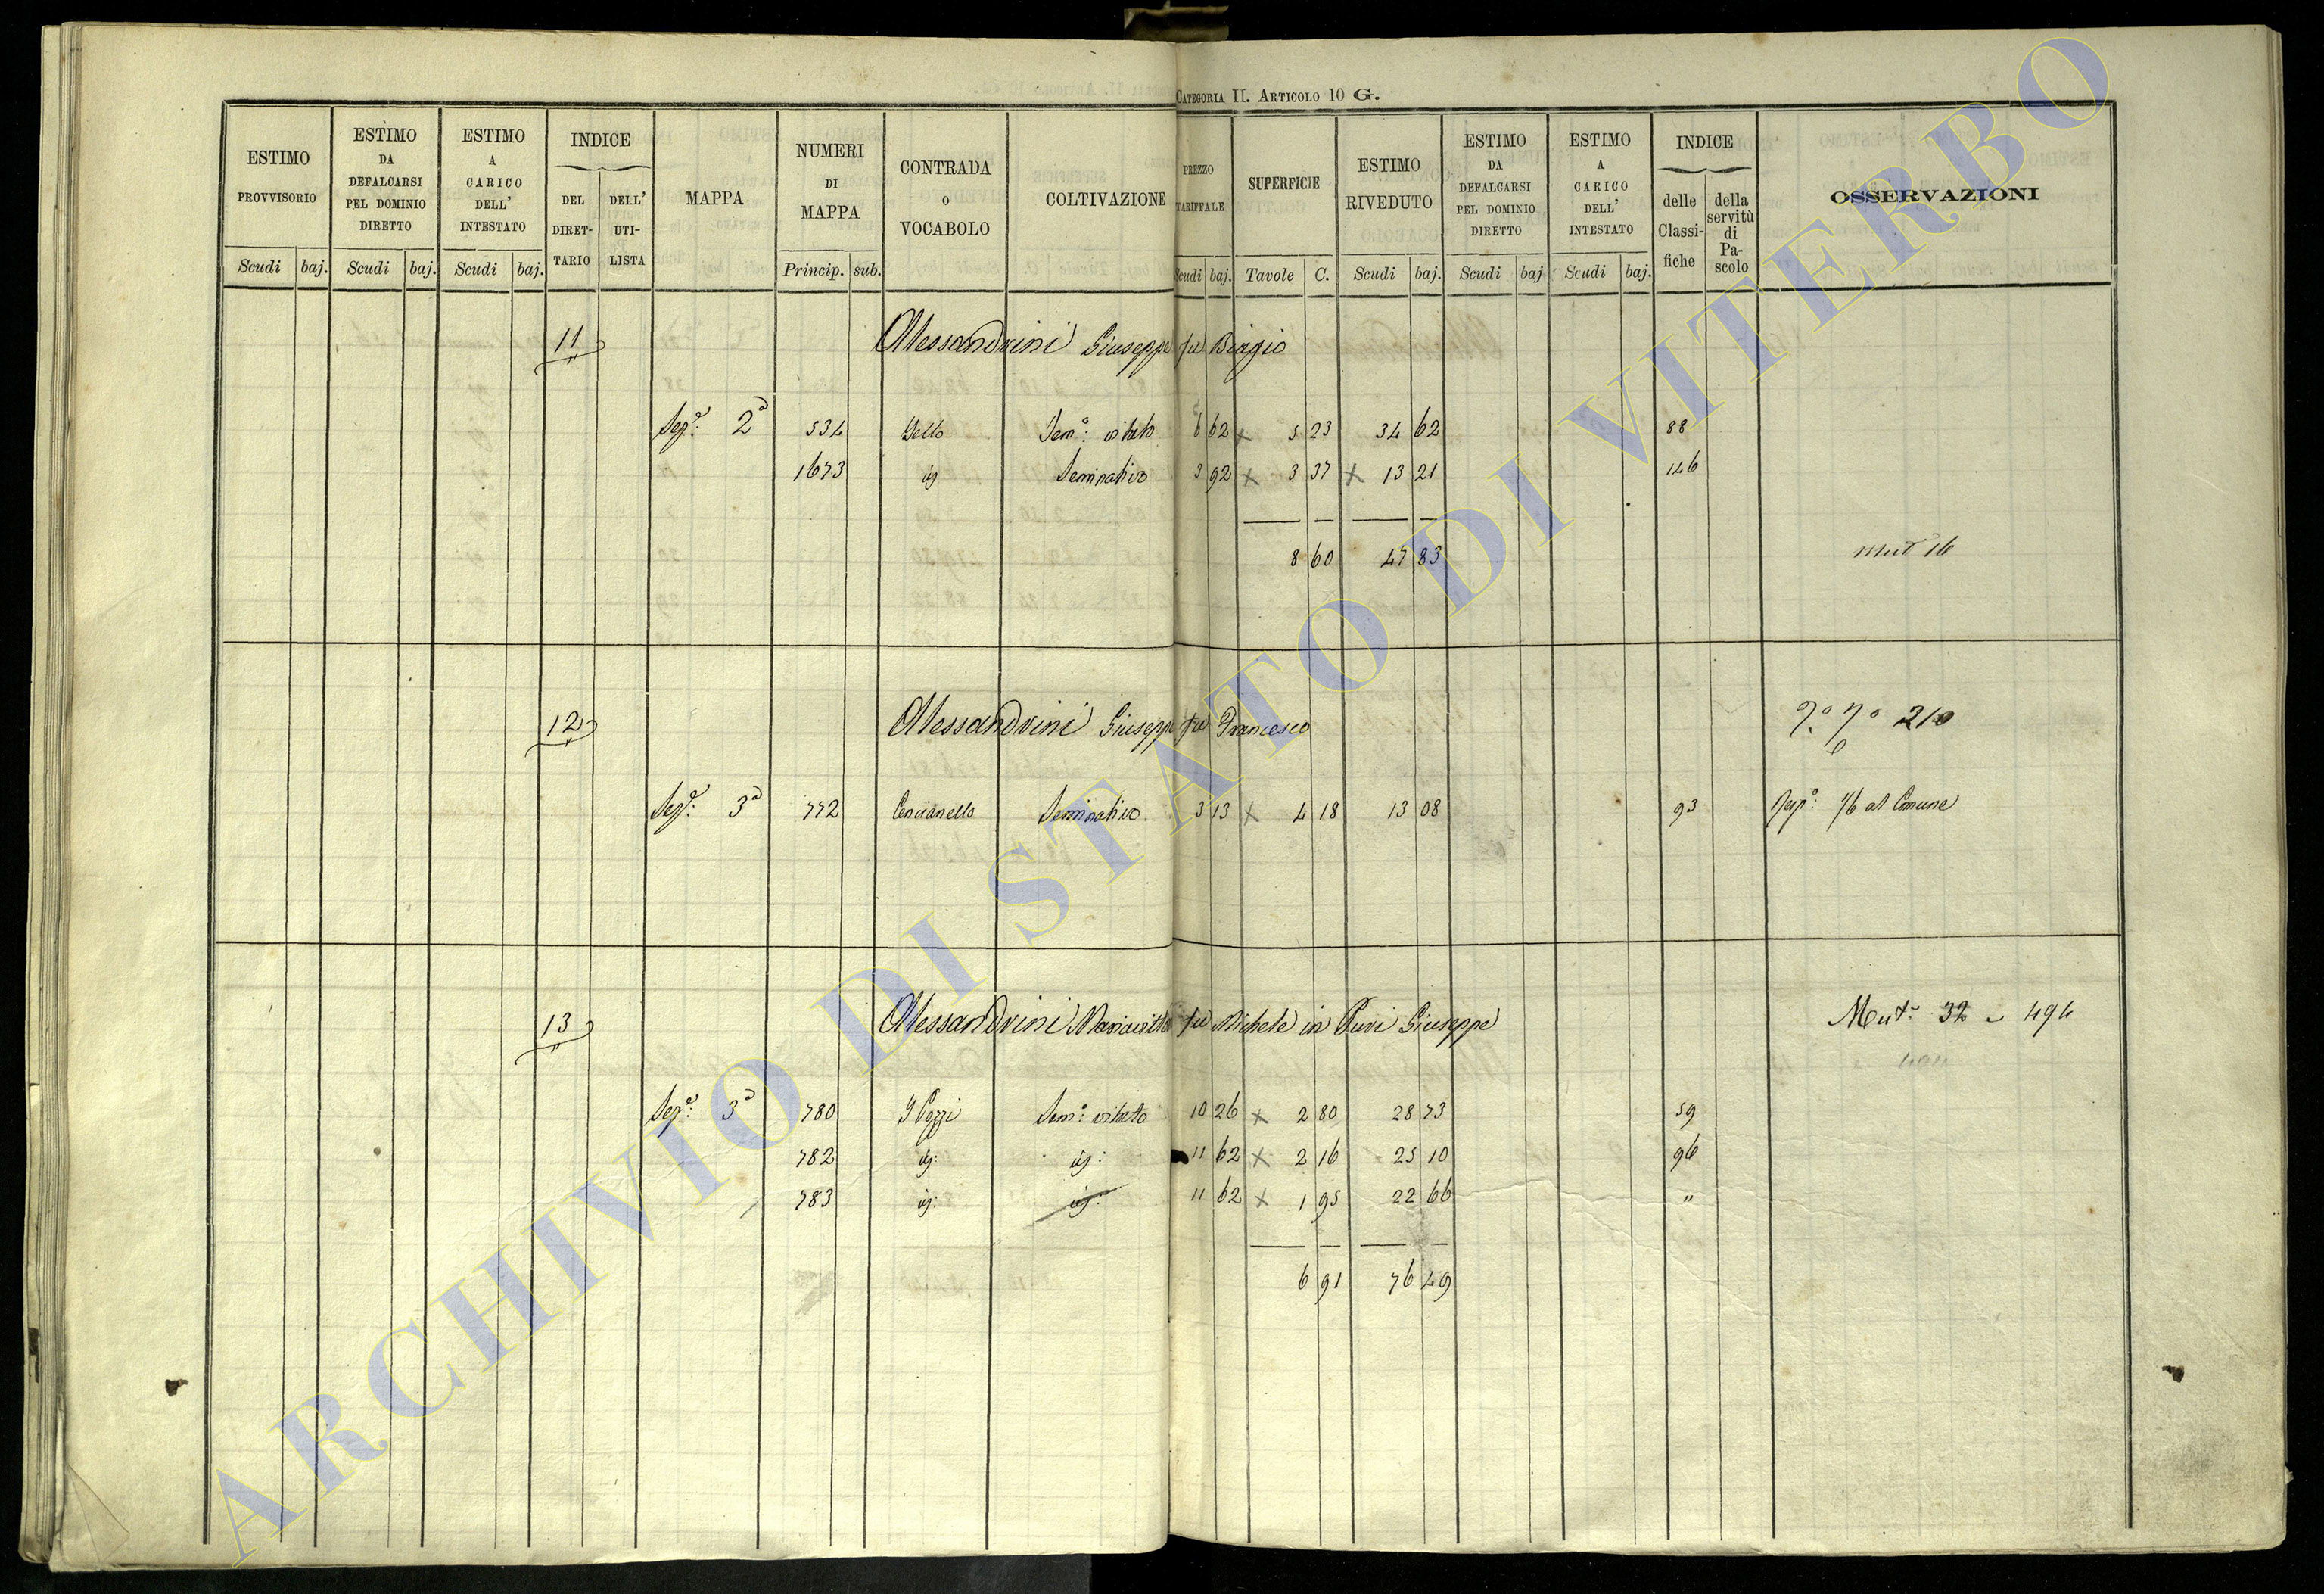 CATEGORIA II. ARTICOLO 10 G.
ESTIMO PROVVISORIO Scudi baj.
ESTIMO DA DEFALCARSI PEL DOMINIO DIRETTO Scudi baj.
ESTIMO A CARICO DELL' INTESTATO Scudi baj.
INDICE DEL DIRETTARIO DELL' UTILISTA
MAPPA
NUMERI DI MAPPA Princip. sub.
CONTRADA o VOCABOLO
COLTIVAZIONE
PREZZO TARIFFALE Scudi baj.
SUPERFICIE Tavole C.
ESTIMO RIVEDUTO Scudi baj.
ESTIMO DA DEFALCARSI PEL DOMINIO DIRETTO Scudi baj
ESTIMO A CARICO DELL' INTESTATO Scudi baj.
INDICE delle Classifiche della servitù di Pascolo
OSSERVAZIONI
11 Alessandrini Giuseppe fu Biagio
Sez.e 2a 534 Gello Sem.o vitato 6 62 x 5 23 34 62 88
1673 id Seminativo 3 92 x 3 37 x 13 21 146
8 60 47 83 Mut 16
12 Alessandrini Giuseppe fu Francesco 210
Sez.e 3a 772 Concianello Seminativo 3 13 x 4 18 13 08 93 al Comune
13 Alessandrini fu Michele in Puri Giuseppe Mut. 32 - 494
Sez.e 3a 780 I Pozzi Sem.o vitato 10 26 x 2 80 28 73 59
782 id: id: 11 62 x 2 16 25 10 96
783 id: id: 11 62 x 1 95 22 66 "
6 91 76 49
ARCHIVIO DI STATO DI VITERBO